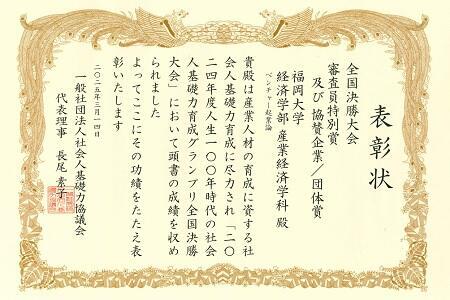 表彰状
全国決勝大会
審査員特別賞
及び 協賛企業／団体賞
福岡大学
経済学部 産業経済学科 殿
ベンチャー起業論
貴殿は産業人材の育成に資する社
会人基礎力育成に尽力され「二〇
二四年度人生一〇〇年時代の社会
人基礎力育成グランプリ全国決勝
大会」において頭書の成績を収め
られました
よってここにその功績をたたえ表
彰いたします
二〇二五年三月一四日
一般社団法人社会人基礎力協議会
代表理事 長尾 素子